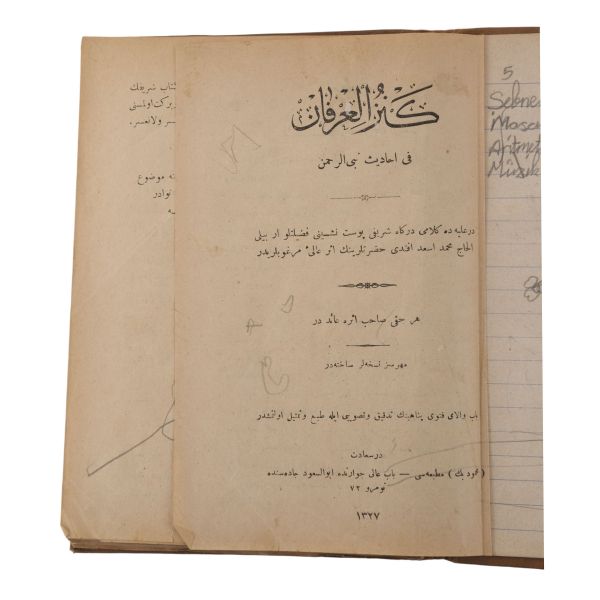 كنز العرفان
فى احاديث نبى الرحمن
در عليه ده كلامى دركاه شريفى پوست نشينى فضيلتلو اربيلى
الحاج محمد اسعد افندى حضرتلرينك اثر عالئ مرغوبلريدر
هر حقى صاحب اثره عائددر
مهرسز نسخه لر ساخته در
باب والاى فتوى پناهينك تدقيق و تصويبى ايله طبع و تمثيل اولنمشدر
در سعادت
(محمود بك) مطبعه سى — باب عالى جوارنده ابوالسعود جاده سنده
نومرو ٧٢
١٣٢٧
كتاب شريفك
بركت اولمسنى
ه موضوع
نوادر
5
Aritmet
Müzik